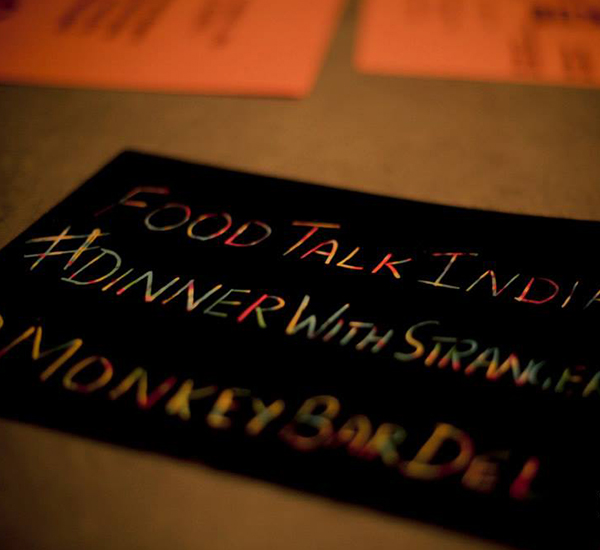 FOOD TALK INDIA
#DINNERWITHSTRANGER
@MONKEYBARDEL